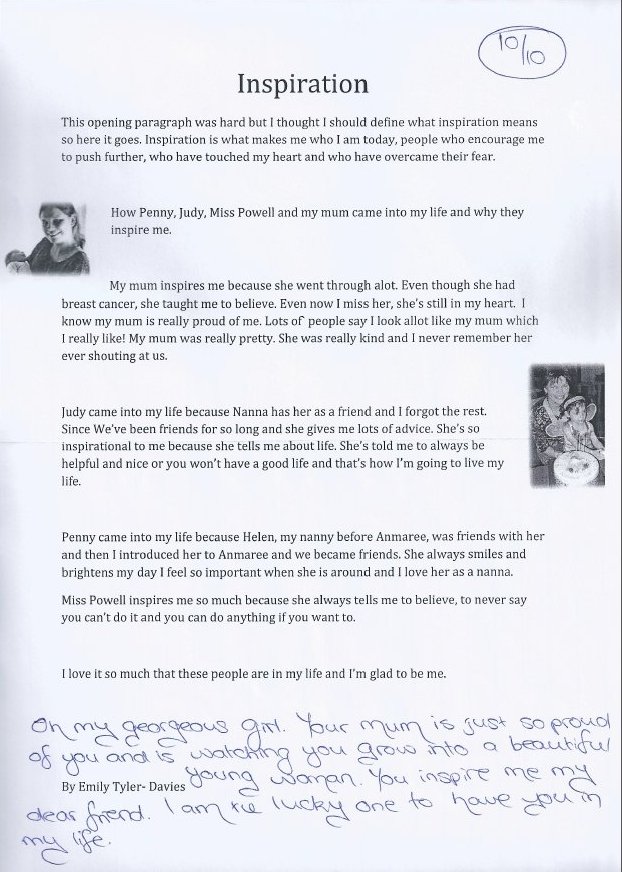 10/10
Inspiration
This opening paragraph was hard but I thought I should define what inspiration means
so here it goes. Inspiration is what makes me who I am today, people who encourage me
to push further, who have touched my heart and who have overcame their fear.
How Penny, Judy, Miss Powell and my mum came into my life and why they
inspire me.
My mum inspires me because she went through alot. Even though she had
breast cancer, she taught me to believe. Even now I miss her, she's still in my heart. I
know my mum is really proud of me. Lots of people say I look allot like my mum which
I really like! My mum was really pretty. She was really kind and I never remember her
ever shouting at us.
Judy came into my life because Nanna has her as a friend and I forgot the rest.
Since We've been friends for so long and she gives me lots of advice. She's so
inspirational to me because she tells me about life. She's told me to always be
helpful and nice or you won't have a good life and that's how I'm going to live my
life.
Penny came into my life because Helen, my nanny before Anmaree, was friends with her
and then I introduced her to Anmaree and we became friends. She always smiles and
brightens my day I feel so important when she is around and I love her as a nanna.
Miss Powell inspires me so much because she always tells me to believe, to never say
you can't do it and you can do anything if you want to.
I love it so much that these people are in my life and I'm glad to be me.
Oh my georgeous girl. Your mum is just so proud
of you and is watching you grow into a beautiful
young woman. You inspire me my
By Emily Tyler- Davies
dear friend. I am the lucky one to have you in
my life.